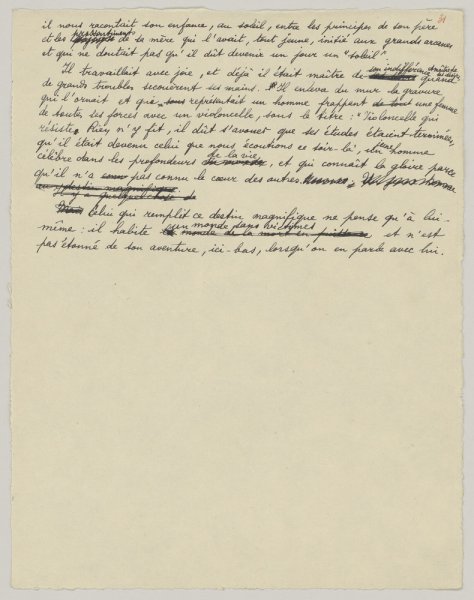 51
il nous racontait son enfance, au soleil, entre les principes de son père
et les pressentiments de sa mère qui l'avait, tout jeune, initié aux grands arcanes
et qui ne doutait pas qu'il dût devenir un jour un "soleil".
Il travaillait avec joie, et déjà il était maître de son indifférence, quand
de grands troubles secouèrent ses mains. Il enleva du mur la gravure
qui l'ornait et qui représentait un homme frappant une femme
de toutes ses forces avec un violoncelle, sous le titre : "Violoncelle qui
résiste". Rien n'y fit, il dût s'avouer que ses études étaient terminées,
qu'il était devenu celui que nous écoutions ce soir-là, un homme
célèbre dans les profondeurs de la vie, et qui connaît la gloire parce
qu'il n'a pas connu le cœur des autres
Celui qui remplit ce destin magnifique ne pense qu'à lui-
même : il habite un monde sans victimes et n'est
pas étonné de son aventure, ici-bas, lorsqu'on en parle avec lui.